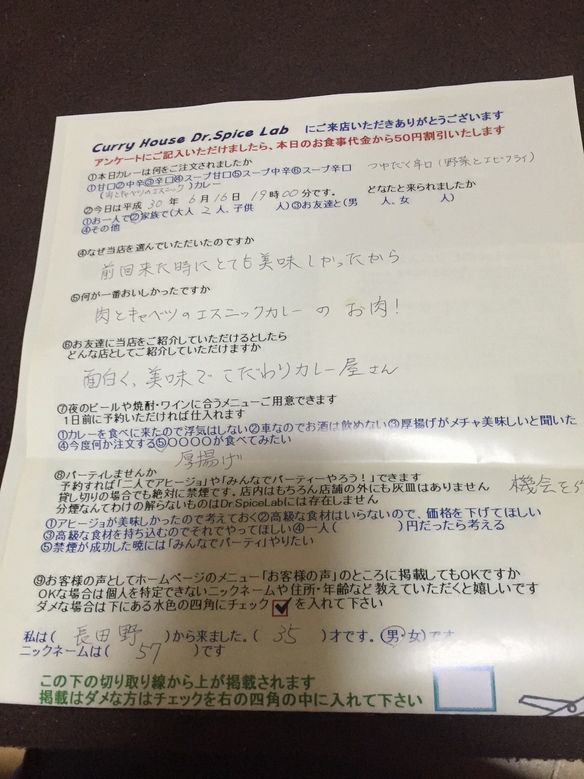 Curry House Dr.Spice Lab にご来店いただきありがとうございます
アンケートにご記入いただけましたら、本日のお食事代金から50円割引いたします
①本日カレーは何をご注文されましたか
①甘口②中辛③辛口④スープ甘口⑤スープ中辛⑥スープ辛口 つゆだく辛口(野菜とエビフライ)
(肉とキャベツのエスニック)カレー
②今日は平成 30 年 6 月 16 日 19 時 00 分です。 どなたと来られましたか
①お一人で②家族で(大人 2 人、子供 人)③お友達と(男 人、女 人)
④その他
④なぜ当店を選んでいただいたのですか
前回来た時にとても美味しかったから
⑤何が一番おいしかったですか
肉とキャベツのエスニックカレーの お肉!
⑥お友達に当店をご紹介していただけるとしたら
どんな店としてご紹介していただけますか
面白く、美味で こだわりカレー屋さん
⑦夜のビールや焼酎・ワインに合うメニューご用意できます
1日前に予約いただければ仕入れます
①カレーを食べに来たので浮気はしない②車なのでお酒は飲めない③厚揚げがメチャ美味しいと聞いた
④今度何か注文する⑤〇〇〇〇が食べてみたい
厚揚げ
⑧パーティしませんか
予約すれば「二人でアヒージョ」や「みんなでパーティーやろう!」できます
貸し切りの場合でも絶対に禁煙です。店内はもちろん店舗の外にも灰皿はありません 機会を
分煙なんてわけの解らないものはDr.SpiceLabには存在しません
①アヒージョが美味しかったので考えておく②高級な食材はいらないので、価格を下げてほしい
③高級な食材を持ち込むのでそれでやってほしい④一人( )円だったら考える
⑤禁煙が成功した暁には「みんなでパーティ」やりたい
⑨お客様の声としてホームページのメニュー「お客様の声」のところに掲載してもOKですか
OKな場合は個人を特定できないニックネームや住所・年齢など教えていただくと嬉しいです
ダメな場合は下にある水色の四角にチェック☑を入れて下さい
私は( 長田野 )から来ました。( 35 )才です。(男・女)です
ニックネームは( 57 )です
この下の切り取り線から上が掲載されます
掲載はダメな方はチェックを右の四角の中に入れて下さい